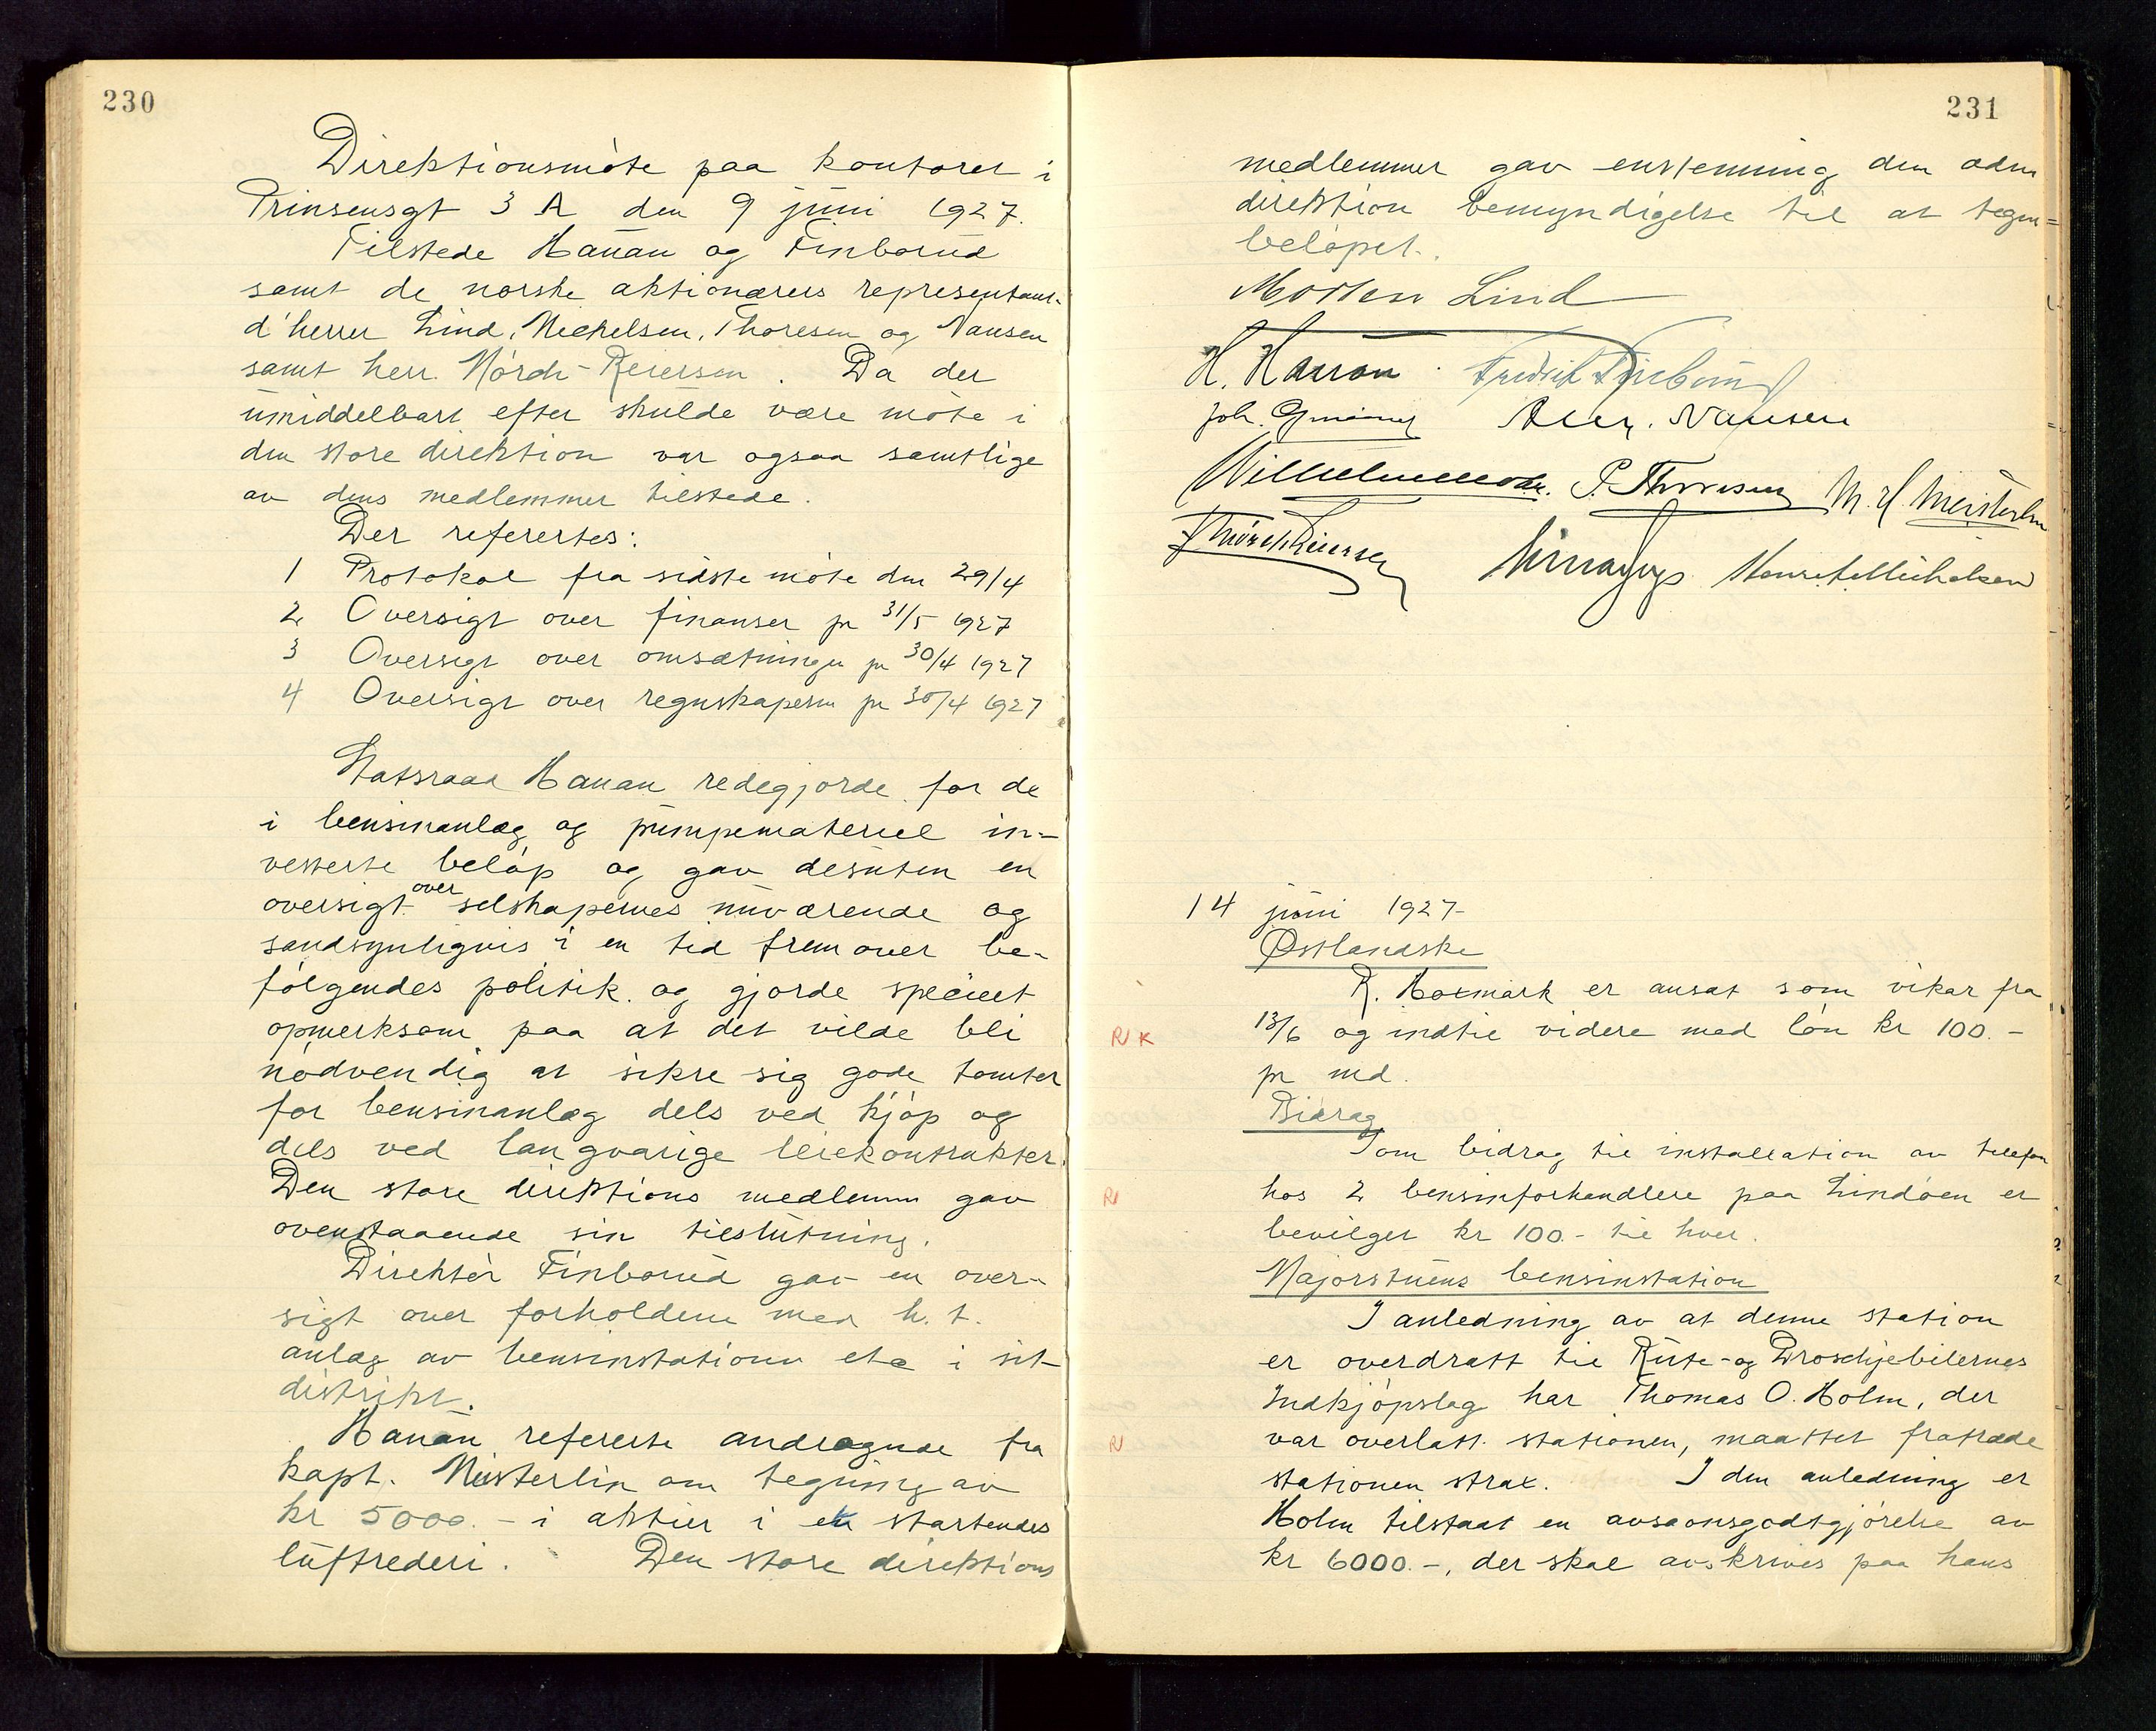 230
Direktionsmöte paa kontoret i
Prinsensgt 3 A den 9 juni 1927.
Tilstede Hanan og Finborud
samt de norske aktionærers representant.
d'herrer Lind, Mickelsen, Thoresen og Nansen
samt herr Mörch-Reiersen. Da der
umiddelbart efter skulde være möte i
den store direktion var ogsaa samtlige
av dens medlemmer tilstede.
Der refertes:
1 Protokol fra sidste möte den 29/4
2 Oversigt over finanser pr 31/5 1927
3 Oversigt over omsætningen pr 30/4 1927
4 Oversigt over regnskapern pr 30/4 1927
Statsraad Hanan redegjorde for de
i bensinanlæg og pumpemateriel in-
vesterte belöp og gav desuten en
oversigt over selskapernes nuværende og
sandsynligvis i en tid fremover be-
følgendes politik og gjorde specielt
opmerksom paa at det vilde bli
nödvendig at sikre sig gode tomter
for bensinanlæg dels ved kjöp og
dels ved langvarige leiekontrakter.
Den store direktions medlemm gav
ovenstaaende sin tilslutning.
Direktör Finborud gav en over-
sigt over forholdene med h. t.
anlæg av bensinstationer etc i sit
distrikt.
Hanan refererte andragende fra
kapt. Meisterlin om tegning av
kr 5000.- i aktier i et startendes
luftrederi. Den store direktions
231
medlemmer gav enstemmig den adm
direktion bemyndigelse til at tegne
belöpet.
Morten Lind
H. Hanan Fredrik Finborud
Joh. Alex. Nansen
P. Thoresen M. H. Meisterlin
Mörch Reiersen Mickelsen
14 juni 1927
Østlandske
R. Hoxmark er ansat som vikar fra
R/ K 13/6 og indtil videre med lön kr 100.-
pr md.
Bidrag
Som bidrag til installation av telefon
R/ hos 2 bensinforhandlere paa Lindöen er
bevilget kr 100.- til hver.
Majorstuens bensinstation
I anledning av at denne station
er overdratt til Rute- og Droschjebilernes
Indkjöpslag har Thomas O. Holm, der
R/ var overlatt stationen, maattet fratræde
stationen strax. I den anledning er
Holm tilstaat en avsaonsgodtgjörelse av
kr 6000.-, der skal avskrives paa hans